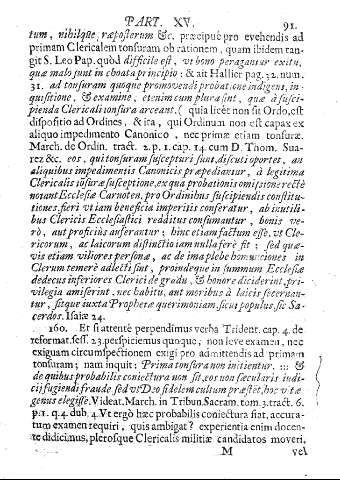 PART. XV. 91.
tum, nihilque raptorum &c. præcipuè pro evehendis ad
primam Clericalem tonsuram ob rationem, quam ibidem tan-
git S. Leo Pap. quòd difficile est, ut bono peragantur exitu,
quæ malo sunt inchoata principio: & ait Hallier pag. 32. num.
31. ad tonsuram quoque promovendi probatione indigent, in-
quisitione, & examine, etenim cum plura sint, quæ à susci-
pienda Clericali tonsura arceant. (quia licèt non sit Ordo, est
dispositio ad Ordines, & ita, qui Ordinum non est capax ex
aliquo impedimento Canonico, nec primæ etiam tonsuræ.
March. de Ordin. tract. 2. p. 1. cap. 14. cum D. Thom. Sua-
rez &c. eos, qui tonsuram suscepturi sunt, discuti oportet, an
aliquibus impedimentis Canonicis præpediantur, à legitima
Clericalis tonsuræ susceptione, ex qua probationis omissione rectè
notant Ecclesiæ Carnoten. pro Ordinibus suscipiendis constitu-
tiones, fieri ut etiam beneficia imperitis conferatur, ab inutili-
bus Clericis Ecclesiastici redditus consumantur, bonis ve-
rò, aut proficuis auferantur; hinc etiam factum esse, ut Cle-
ricorum, ac laicorum distinctio iam nulla ferè sit; sed quæ-
vis etiam viliores personæ, ac de ima plebe homunciones in
Clerum temerè adlecti sint, proindeque in summum Ecclesiæ
dedecus inferiores Clerici de gradu, & honore deciderint, pri-
vilegia amiserint, nec habitu, aut moribus à laicis secernan-
tur, sitque iuxta Prophetæ querimoniam, sicut populus, sic Sa-
cerdos. Isaiæ 24.
160. Et si attentè perpendimus verba Trident. cap. 4. de
reformat. sess. 23. perspiciemus quoque, non leve examen, nec
exiguam circumspectionem exigi pro admittendis ad primam
tonsuram; nam inquit: Prima tonsura non initientur. ::: &
de quibus probabilis coniectura non sit, eos non sæcularis indi-
cii fugiendi fraude sed ut Deo fidelem cultum præstet, hoc vitæ
genus elegisse. Videat. March. in Tribun. Sacram. tom. 3. tract. 6.
p. 1. q. 4. dub. 4. Ut ergò hæc probabilis coniectura fiat, accura-
tum examen requiri, quis ambigat? experientia enim docen-
te didicimus, plerosque Clericalis militiæ candidatos moveri,
M vel